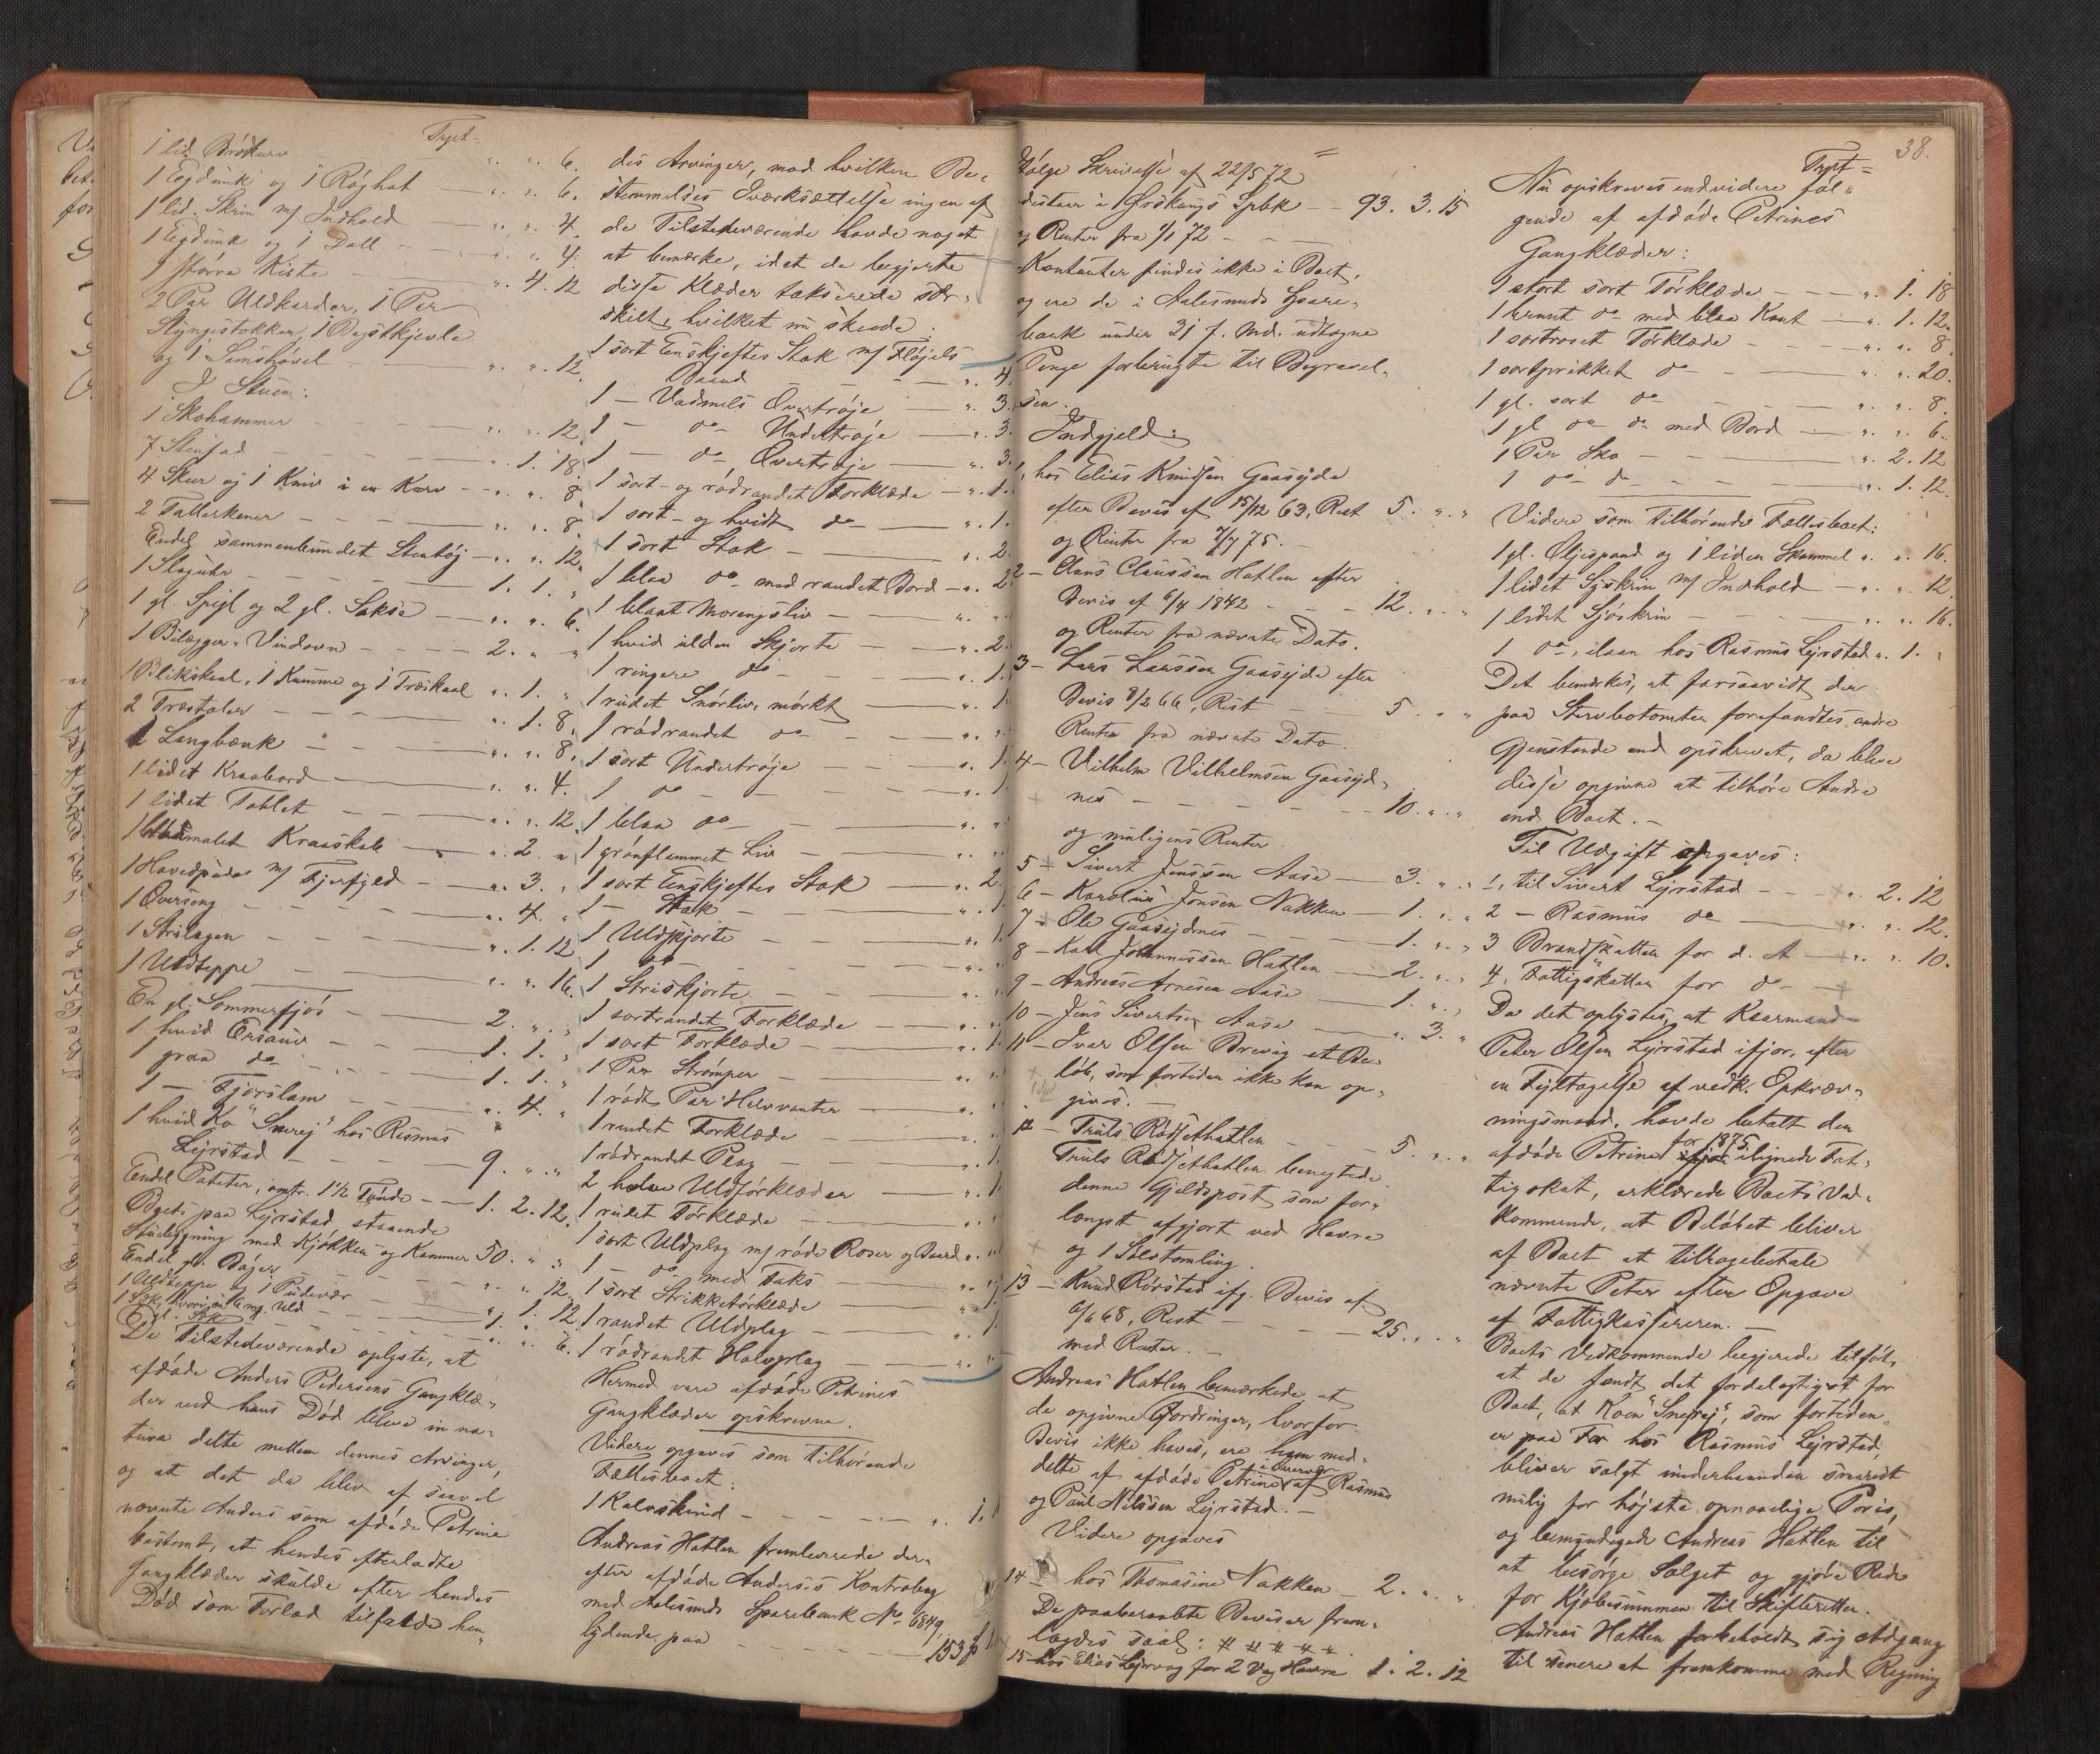 Trpt=
1 lid. Brödkurv „ „ 6.
1 Egdunk og 1 Röghat „ „ 6.
1 lid. Skrin m/ Indhold „ „ 4.
1 Egdunk og 1 Dall „ „ 4.
1 större Kiste „ 4. 12
2 Par Uldkarder, 1 Par
Slyngestokker, 1 Bagstkjevle
og 1 Simshövel „ „ 12.
I Stuen:
1 Skohammer „ „ 12
7 Stenfad „ 1. 18
4 Skeer og 1 Kniv i en Kurv „ „ 8
2 Tallerkener „ „ 8
Endel sammenbundet Stentöj „ „ 12.
1 Slaguhr 1. 1. „
1 gl. Spejl og 2 gl. Sakse „ „ 6.
1 Bilægger-Vindovn 2. „ „
1 Blikskaal, 1 Kumme og 1 Træskaal „ 1. „
2 Træstoler „ 1. 8.
1 Langbænk „ „ 8.
1 lidet Kraabord „ „ 4.
1 lidet Tablet „ „ 12
1 umalet Kraaskab „ 2. „
1 Hovedpude m/ Fjerfyld „ 3. „
1 Overseng „ 4. „
1 Strilagen „ 1. 12
1 Uldteppe „ „ 16.
En gl. Sommerfjös 2. „ „
1 hvid Ersauv 1. 1. „
1 graa do 1. 1. „
1 — Fjorslam „ 4. „
1 hvid Ko "Snerej" hos Rasmus
Lejrstad 9. „ „
Endel Poteter, omtr. 1½ Tönde 1. 2. 12.
Boets paa Lejrstad staaende
Stuebygning med Kjökken og Kammer 50. „ „
Endel gl. Böger „ „ 12
1 Uldteppe og 1 Pudevær „ 1. 12
De Tilstedeværende oplyste, at
afdöde Anders Pedersens Gangklæ-
der ved hans Död bleve in na-
tura delte mellem dennes Arvinger,
og at det da blev af saavel
nævnte Anders som afdöde Petrine
bestemt, at hendes efterladte
Gangklæder skulde efter hendes
Död som Forlod tilfalde hen-
des Arvinger, mod hvilken Be-
stemmelses Iværksættelse ingen af
de Tilstedeværende havde noget
at bemærke, idet de begjærte
disse Klæder takserede sær-
skilt, hvilket nu skede:
1 sort Enskjeftes Stak m/ Flöjels
Baand „ 4.
1 — Vadmels Overtröje „ 3.
1 — do Undertröje „ 3.
1 — do Overtröje „ 3.
1 sort- og rödrandet Forklæde „ 1.
1 sort- og hvidt do „ 1.
1 sort Stak „ 2.
1 blaa do med randet Bord „ 2.
1 blaat Morengsliv „ „
1 hvid ulden Skjorte „ 2.
1 ringere do „ 1.
1 rudet Snörliv, mörkt „ 1.
1 rödrandet do „ „
1 sort Undertröje „ 1.
1 do „ 1.
1 blaa do „ „
1 grönflammet Liv „ „
1 sort Enskjeftes Stak „ 2.
1 — Stak „ 1.
1 Uldskjorte „ 1.
1 do „ „
1 Striskjorte „ „
1 sortrandet Forklæde „ „
1 sort Forklæde „ 1.
1 Par Strömper „ „
1 rödt Par Halvvanter „ „
1 randet Forklæde „ „
1 rödrandet Plag „ 1.
2 halve Uldtörklæder „ 1.
1 rudet Törklæde „ „
1 sort Uldplag m/ röde Roser og Baard „ „
1 — do med Taks „ „
1 sort Strikketörklæde „ 1.
1 randet Uldplag „ 1.
1 rödrandet Halvplag „ „
Hermed vare afdöde Petrines
Gangklæder opskrevne.
Videre opgaves som tilhörende
Fællesboet:
1 Kalveskind „ 1.
Andreas Hatlen fremleverede der-
efter afdöde Anderses Kontrabog
med Aalesunds Sparebank No 6849,
lydende paa 153
=
38.
fölge Skrivelse af 22/5 72
destaar i Örskougs Spbk 93. 3. 15
og Renter fra 1/1 72
Kontanter findes ikke i Boet,
og ere de i Aalesunds Spare-
bank under 31 f. Md. udtagne
Penge forbrugte til Begravel-
sen.
Indgjeld:
1, hos Elias Knudsen Gaasejde
efter Bevis af 15/12 63, Rest 5. „ „
og Renter fra 7/7 75.
2 — Claus Claussen Hatlen efter
Bevis af 6/4 1842 12. „ „
og Renter fra nævnte Dato.
3 — Lars Larssen Gaasejde efter
Bevis 8/2 66, Rest 5. „ „
Renter fra nævnte Dato.
4 — Vilhelm Vilhelmsen Gaasejd-
nes 10. „ „
og muligens Renter.
5 — Sivert Jenssen Aase 3. „ „
6 — Karoline Jonsen Nakken 1. „ „
7 — Ole Gaasejdnes 1. „ „
8 — Karl Johannessen Hatlen 2. „ „
9 — Andreas Arnesen Aase 1. „ „
10 — Jens Sivertsen Aase „ 3. „
11 — Ivar Olsen Brevig et Be-
löb, som fortiden ikke kan op-
gives.
12 — Truls Rödsethatlen 5. „ „
Truls Rödsethatlen benegtede
denne Gjeldspost som for-
længst afgjort ved Havre
og 1 Sletomling.
13 — Knud Rörstad ifg. Bevis af
6/6 68, Rest 25. „ „
med Renter.
Andreas Hatlen bemærkede at
de opgivne Fordringer, hvorfor
Bevis ikke haves, ere ham med-
delte af afdöde Petrine i Overvær af Rasmus
og Paul Nilssen Lejrstad.
Videre opgaves
14 — hos Thomasine Nakken 2. „ „
De paaberaabte Beviser frem-
lagdes saal: # # # # #
15 — hos Elias Lejrvog for 2 Vog Havre 1. 2. 12
Trpt=
Nu opskreves endvidere föl-
gende af afdöde Petrines
Gangklæder:
1 stort sort Törklæde „ 1. 18
1 brunt do med blaa Kant „ 1. 12.
1 sortroset Törklæde „ „ 8.
1 sortprikket do „ „ 20.
1 gl. sort do „ „ 8.
1 gl do do med Bord „ „ 6.
1 Par Sko „ 2. 12
1 do do „ 1. 12.
Videre som tilhörende Fællesboet:
1 gl. Oljespand og 1 liden Skammel „ „ 16.
1 lidet Syskrin m/ Indhold „ „ 12.
1 lidet Sjöskrin „ „ 16.
1 do, ilaan hos Rasmus Lejrstad „ 1. „
Det bemærkes, at forsaavidt der
paa Stervbotomten forefandtes andre
Gjenstande end opskrevet, da bleve
disse opgivne at tilhöre Andre
end Boet.
Til Udgift opgaves:
1, til Sivert Lejrstad „ 2. 12
2 — Rasmus do „ „ 12.
3 Brandskatten for d. A „ „ 10.
4. Fattigskatten for do
Da det oplystes, at Kaarmand
Peter Olsen Lejrstad ifjor, efter
en Fejltagelse af vedk. Opkræv-
ningsmand, havde betalt den
afdöde Petrine for 1875 ilignede Fat-
tigskat, erklærede Boets Ved-
kommende, at Belöbet bliver
af Boet at tilbagebetale
nævnte Peter efter Opgave
af Fattigkassereren.
Boets Vedkommende begjerede tilfört,
at de fandt det fordelagtigst for
Boet, at Koen "Snerej", som fortiden
er paa For hos Rasmus Lejrstad,
bliver solgt underhaanden snarest
mulig for höjste opnaaelige Pris,
og bemyndigede Andreas Hatlen til
at besörge Salget og gjöre Rede
for Kjöbesummen til Skifteretten.
Andreas Hatlen forbeholdt sig Adgang
til senere at fremkomme med Regning